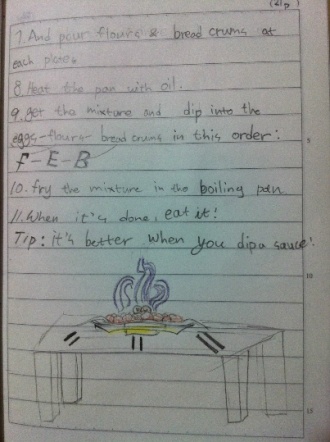 (21p)
7. And pour flours & bread crums at
each plates
8. Heat the pan with oil.
9. get the mixture and dip into the
eggs-flours-bread crums in this order:
F-E-B
10. fry the mixture in the boiling pan
11. When it's done, eat it!
Tip: it's better when you dip a sauce!
5
10
15